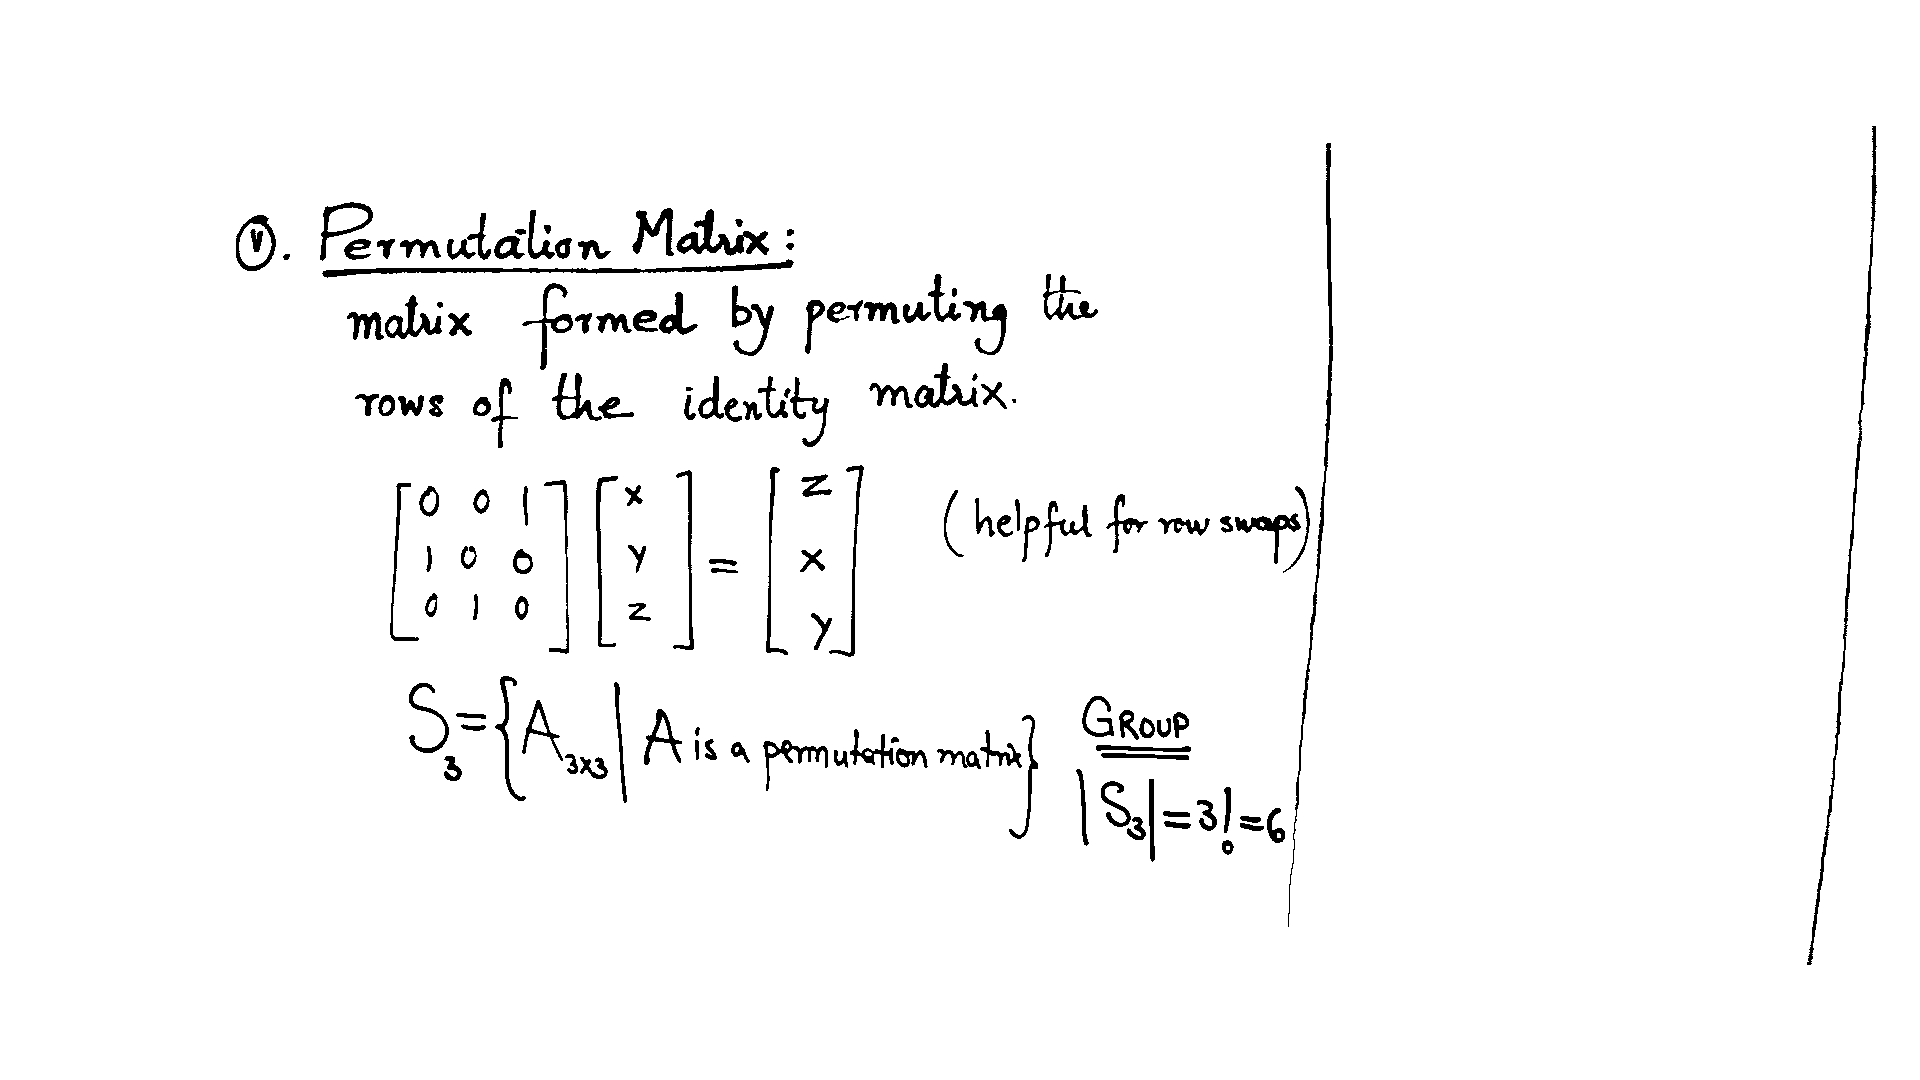 (v). Permutation Matrix:
matrix formed by permuting the
rows of the identity matrix.
[0 0 1; 1 0 0; 0 1 0] [x; y; z] = [z; x; y] (helpful for row swaps)
S₃ = {A₃ₓ₃ | A is a permutation matrix} GROUP
|S₃| = 3! = 6